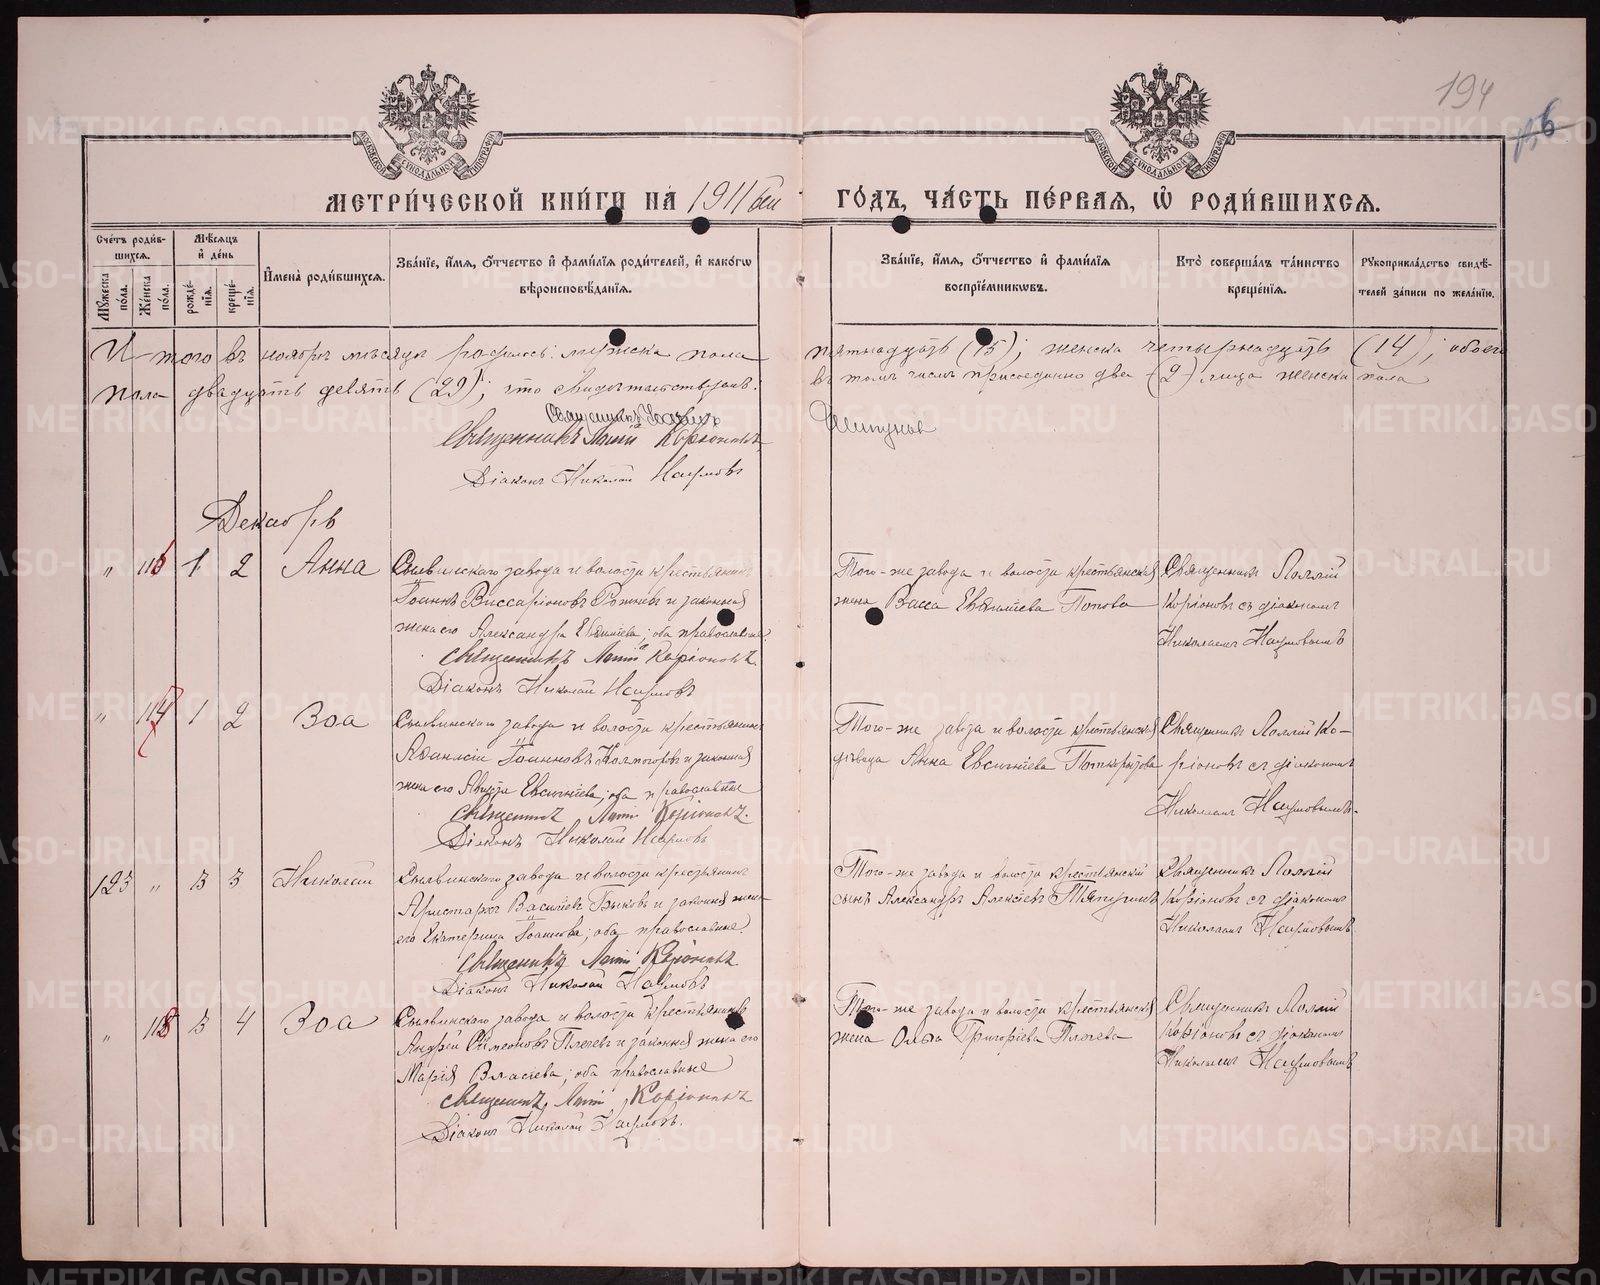 194
МЕТРИ́ЧЕСКОЙ КНИ́ГИ НА 1911 ГО́ДЪ, ЧА́СТЬ ПЕ́РВАЯ, Ѡ РОДИ́ВШИХСЯ.
Сче́тъ роди́вшихся.
Му́жеска по́ла.
Же́нска по́ла.
Мѣ́сяцъ и де́нь
рожде́нія.
креще́нія.
Имена̀ роди́вшихся.
Зва́ніе, и́мя, о́тчество и фами́лія роди́телей, и како́гѡ вѣроисповѣ́данія.
Зва́ніе, и́мя, о́тчество и фами́лія воспріе́мникѡвъ.
Кто̀ соверша́лъ та́инство креще́нія.
Рукоприкла́дство свидѣ́телей за́писи по жела́нію.
Итого въ ноябрѣ мѣсяцѣ родилось: мужска пола пятнадцать (15); женска четырнадцать (14); обоего
пола двадцать девять (29); что свидѣтельствуемъ: въ томъ числѣ присоединено два (2) лица женска пола
Священникъ Коріоновъ
Діаконъ Николай Наумовъ
Декабрь
„ 116 1 2 Анна
Сылвинскаго завода и волости крестьянинъ
Іоаннъ Виссаріоновъ и законная
жена его Александра; оба православные
Священникъ Коріоновъ
Діаконъ Николай Наумовъ
Того-же завода и волости крестьянская
жена Васса Попова
Священникъ
Коріоновъ съ діакономъ
Николаемъ Наумовымъ
„ 117 1 2 Зоа
Сылвинскаго завода и волости крестьянинъ
Аѳанасій Іоанновъ Колмогоровъ и законная
жена его; оба православные
Священникъ Коріоновъ.
Діаконъ Николай Наумовъ
Того-же завода и волости крестьянская
дѣвица Анна
Священникъ Ко-
ріоновъ съ діакономъ
Николаемъ Наумовымъ.
123 „ 3 3 Николай
Сылвинскаго завода и волости крестьянинъ
Аристархъ Василіевъ Быковъ и законная жена
его Екатерина Іоаннова; оба православные.
Священникъ Коріоновъ
Діаконъ Николай Наумовъ
Того-же завода и волости крестьянскій
сынъ Александръ Алексіевъ
Священникъ
Коріоновъ съ діакономъ
Николаемъ Наумовымъ
„ 118 3 4 Зоа
Сылвинскаго завода и волости крестьянинъ
Андрей Симеоновъ и законная жена его
Марія Власіева; оба православные
Священникъ Коріоновъ
Діаконъ Николай Наумовъ.
Того-же завода и волости крестьянская
жена Ольга Григоріева
Священникъ
Коріоновъ съ діакономъ
Николаемъ Наумовымъ
METRIKI.GASO-URAL.RU